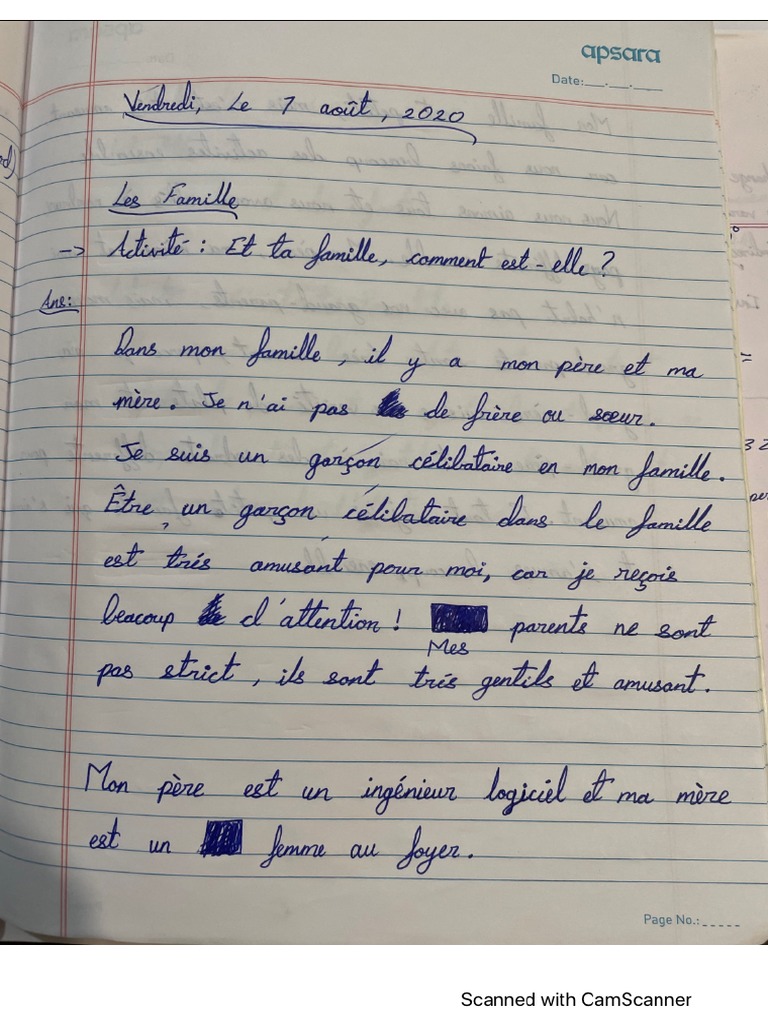 apsara
Date:__.__.__
Vendredi, Le 7 août, 2020
Les Famille
-> Activité : Et ta famille, comment est-elle ?
Ans:
Dans mon famille, il y a mon père et ma
mère. Je n'ai pas de frère ou sœur.
Je suis un garçon célibataire en mon famille.
Être, un garçon célibataire dans le famille
est trés amusant pour moi, car je reçois
beacoup d'attention ! parents ne sont
Mes
pas strict, ils sont trés gentils et amusant.
Mon père est un ingénieur logiciel et ma mère
est un femme au foyer.
Page No.:_____
Scanned with CamScanner